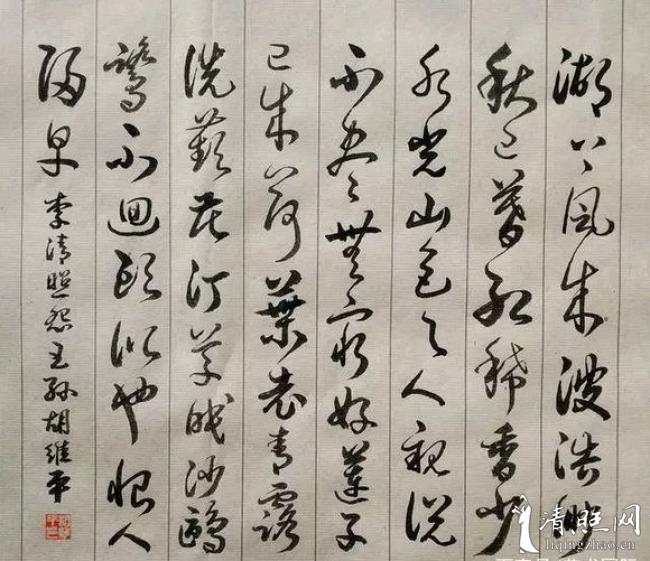 湖上風来波浩渺
秋已暮红稀香少
水光山色与人親说
不尽無窮好蓮子
已成荷葉老青露
洗蘋花汀草眠沙鷗
鷺不迴頭似也恨人
歸早 李清照怨王孫胡維平
清照网
liqingzhao.cn